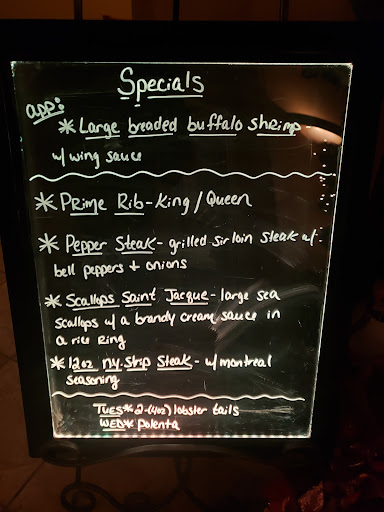 Specials
app:
* Large breaded buffalo shrimp
w/ wing sauce
* Prime Rib - King / Queen
* Pepper Steak - grilled sirloin steak w/
bell peppers + onions
* Scallops Saint Jacque - large sea
scallops w/ a brandy cream sauce in
a rice ring
* 12oz ny. Strip Steak - w/ montreal
seasoning
TUES* 2-(4oz) lobster tails
WED* Polenta